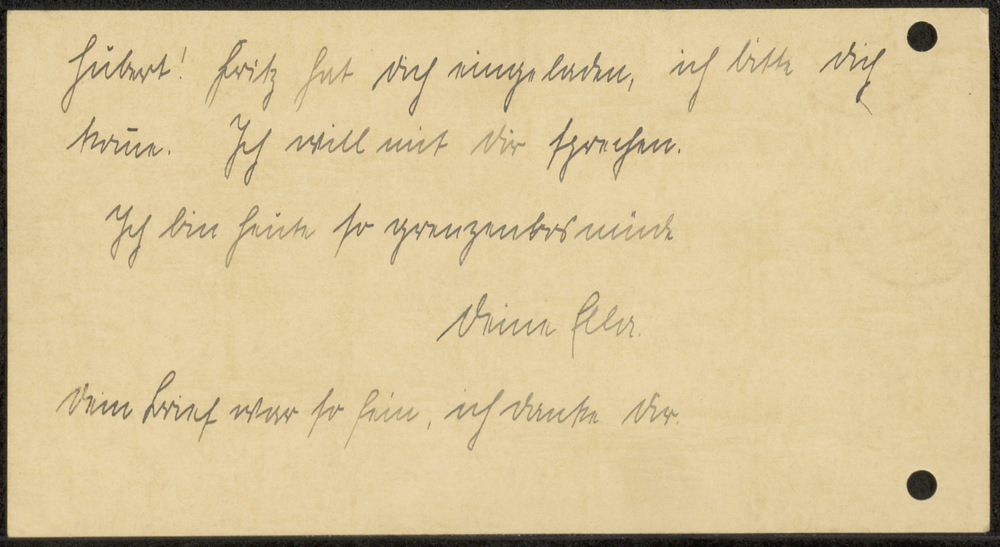 Hubert! Fritz hat dich eingeladen, ich bitte dich
kom̄e. Ich will mit dir sprechen.
Ich bin heute so grenzenlos müde
Deine Ella.
Dein Brief war so fein, ich danke dir.